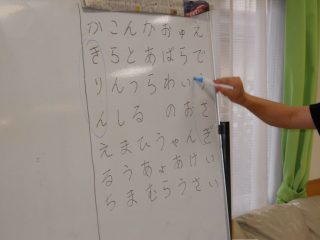 かこんかおゅえ
きらとあばらで
りんっらわい
んしるのおさ
えまひうゃんぎ
るうあょあけい
ちまむらうさい